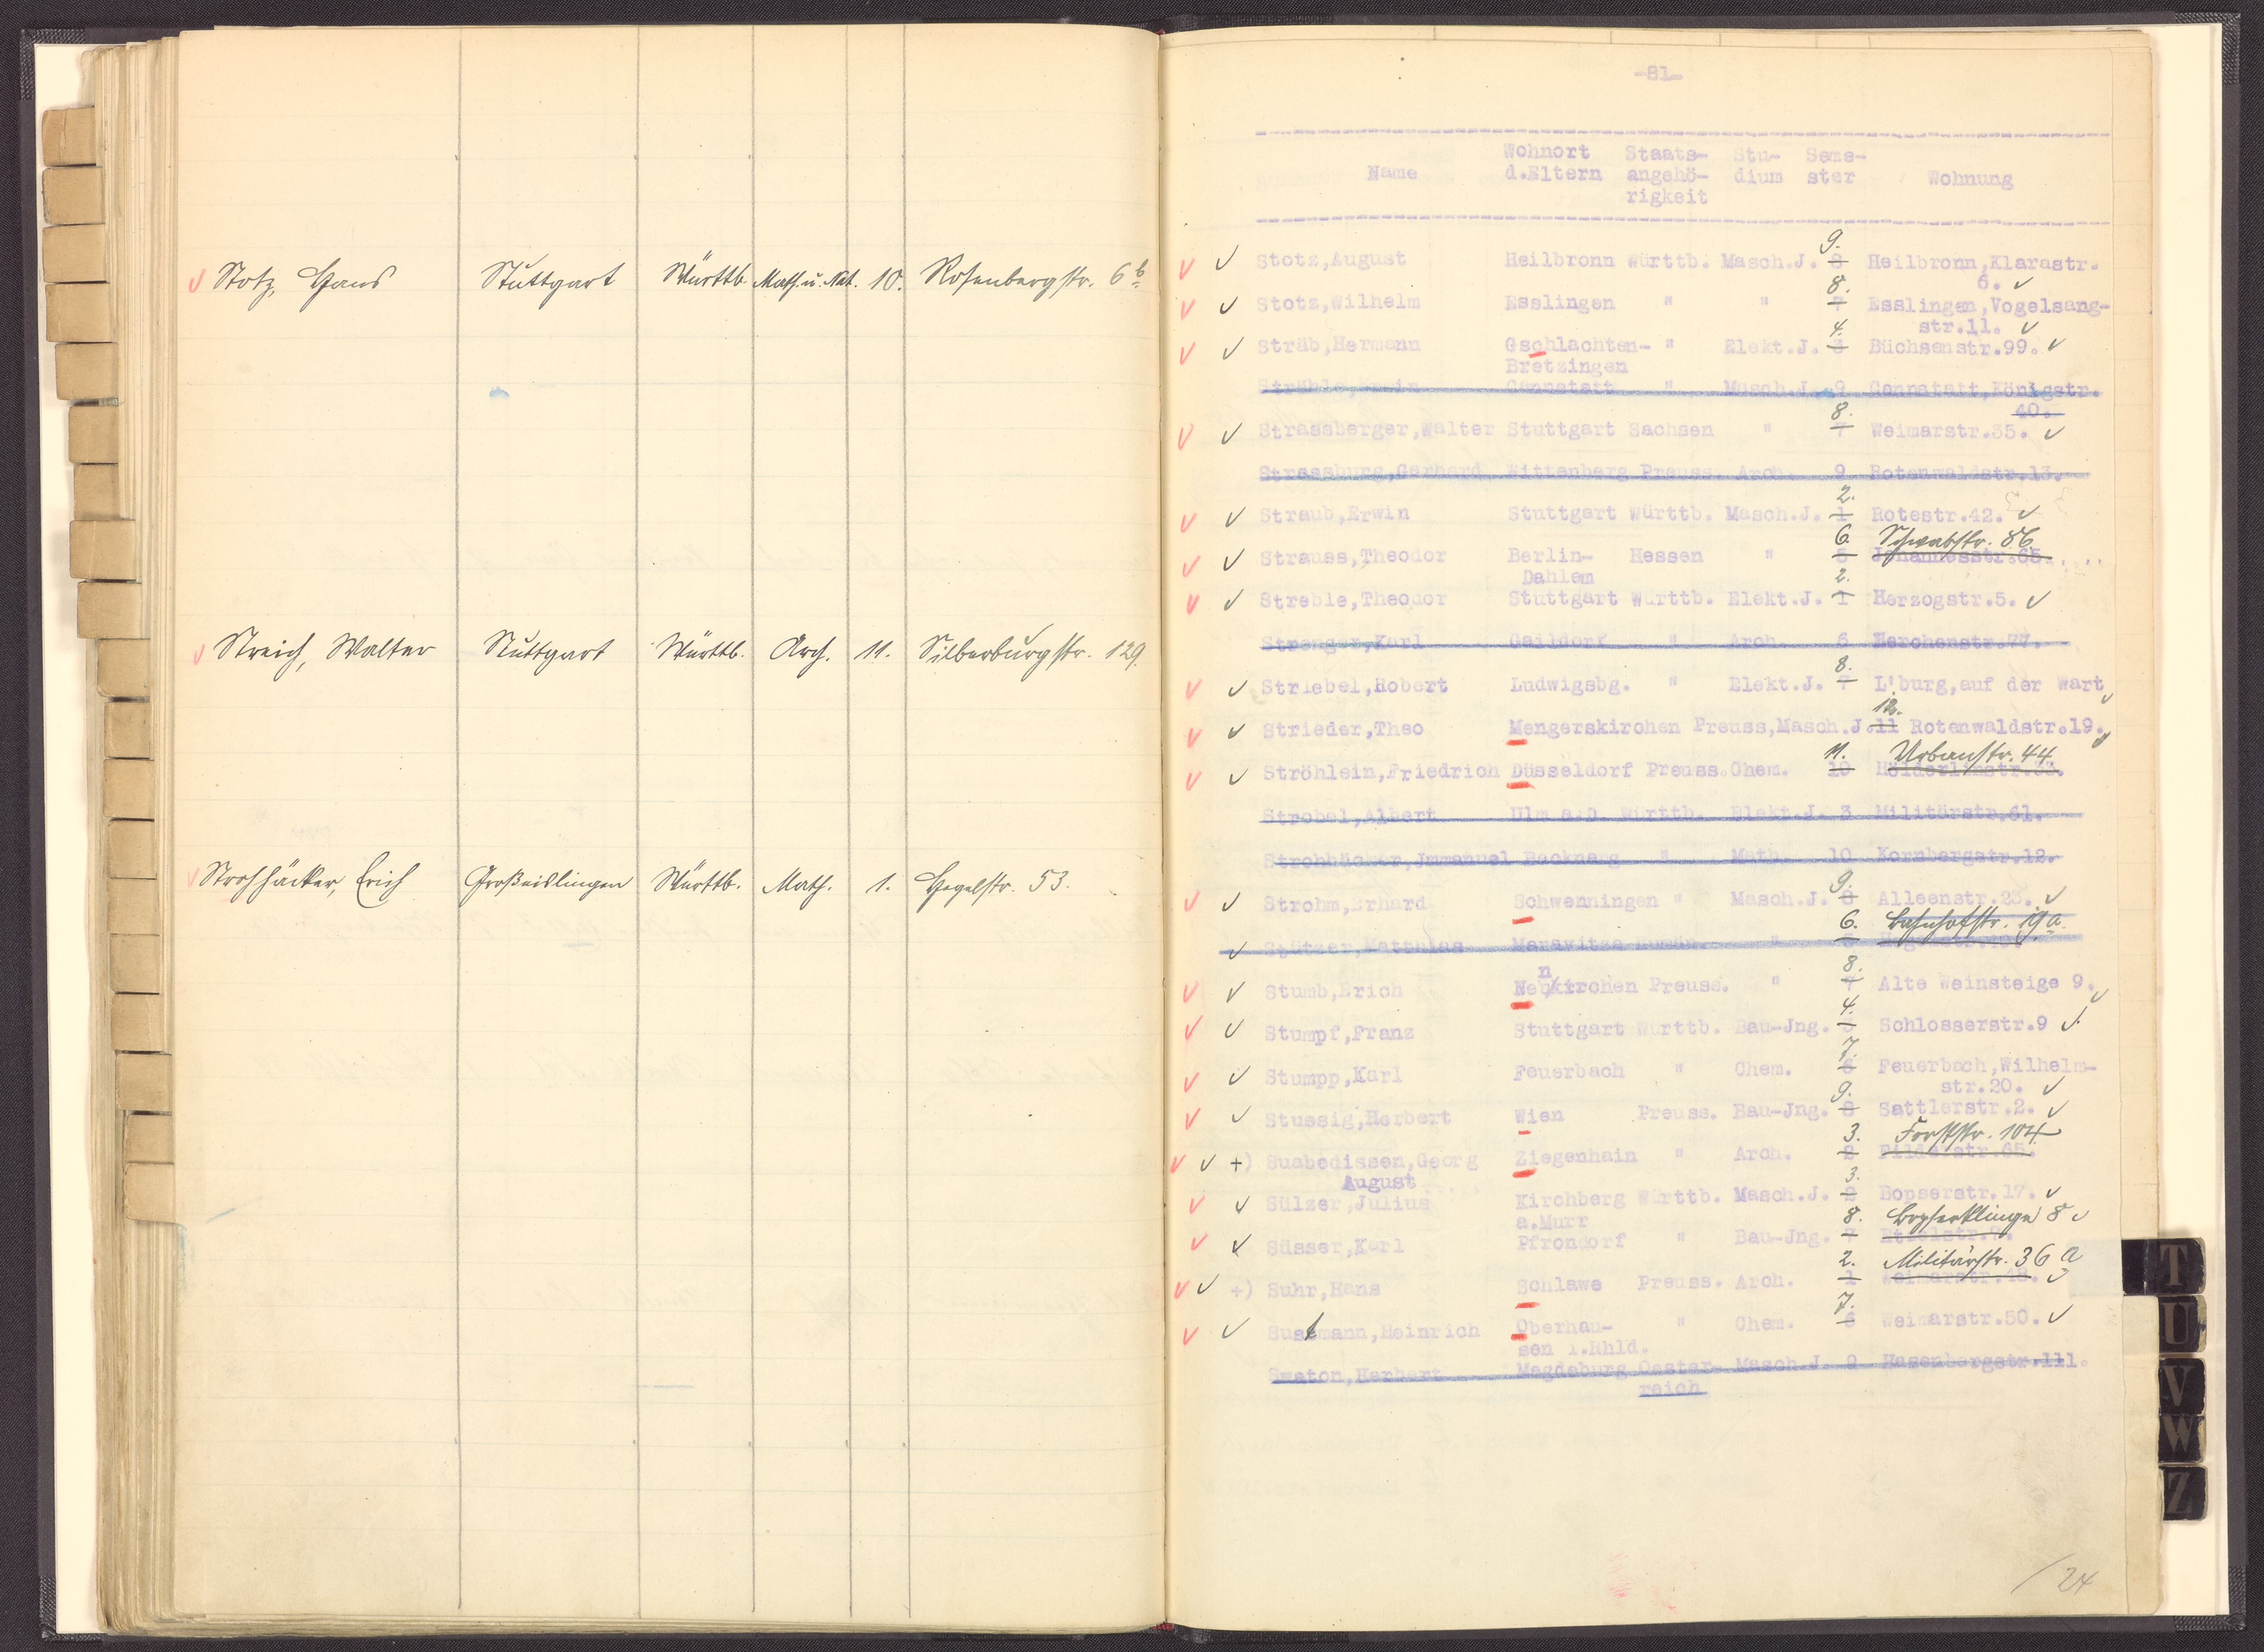 Stotz, Hans Stuttgart Württb. Math. u. Nat. 10. Rosenbergstr. 6 b
Streich, Walter Stuttgart Württb. Arch. 11. Silberburgstr. 129.
Strohhäcker, Erich Großeislingen Württb. Math. 1. Hegelstr. 53.
-81-
Wohnort Staats- Stu- Seme-
Name d.Eltern angehö- dium ster Wohnung
rigkeit
9.
Stotz,August Heilbronn Württb. Masch.J. 8 Heilbronn,Klarastr.
8. 6.
Stotz,Wilhelm Esslingen " " 7 Esslingen,Vogelsang-
4. str.11.
Sträb,Hermann Gschlachten- " Elekt.J. 3 Büchsenstr.99.
Bretzingen
Cannstatt " Masch.J. 9 Cannstatt,Königstr.
8. 40.
Strassberger,Walter Stuttgart Sachsen " 7 Weimarstr.35.
Strassburg,Gerhard Wittenberg Preuss. Arch. 9 Rotenwaldstr.13.
2.
Straub,Erwin Stuttgart Württb. Masch.J. 1 Rotestr.42.
6 Schwabstr. 86
Strauss,Theodor Berlin- Hessen " 5 Johannesstr.65.
Dahlem 2.
Streble,Theodor Stuttgart Württb. Elekt.J. 1 Herzogstr.5.
Strenger,Karl Gaildorf " Arch. 6 Lerchenstr.77.
8.
Striebel,Robert Ludwigsbg. " Elekt.J. 7 L'burg,auf der Wart
12.
Strieder,Theo Mengerskirchen Preuss,Masch.J.11 Rotenwaldstr.19.
11. Urbanstr. 44.
Ströhlein,Friedrich Düsseldorf Preuss.Chem. 10 Hölderlinstr.
Strobel,Albert Ulm a.D. Württb. Elekt.J. 3 Militärstr.61.
Strohhäcker,Jmmanuel Backnang " Math. 10 Kornbergstr.12.
9.
Strohm,Erhard Schwenningen " Masch.J. 8 Alleenstr.23.
6. Bahnhofstr. 19 a.
Stützer,Matthias Maravitza Rumän. " 5
n 8.
Stumb,Erich Neukirchen Preuss. " 7 Alte Weinsteige 9.
4.
Stumpf,Franz Stuttgart Württb. Bau-Jng. 3 Schlosserstr.9
7.
Stumpp,Karl Feuerbach " Chem. 6 Feuerbach,Wilhelm-
9. str.20.
Stussig,Herbert Wien Preuss. Bau-Jng. 8 Sattlerstr.2.
3. Forststr. 104
+) Suabedissen,Georg Ziegenhain " Arch. 2
August 3.
Sülzer,Julius Kirchberg Württb. Masch.J. 2 Bopserstr.17.
a.Murr 8. Bopserklinge 8
Süsser,Karl Pfrondorf " Bau-Jng. 7
2. Militärstr. 36 a
+) Suhr,Hans Schlawe Preuss. Arch. 1 Weimarstr.
7.
Sustmann,Heinrich Oberhau- " Chem. 6 Weimarstr.50.
sen i.Rhld.
Swaton,Herbert Magdeburg Oester- Masch.J. 9 Hasenbergstr.111.
reich
/24
T
U
V
W
Z